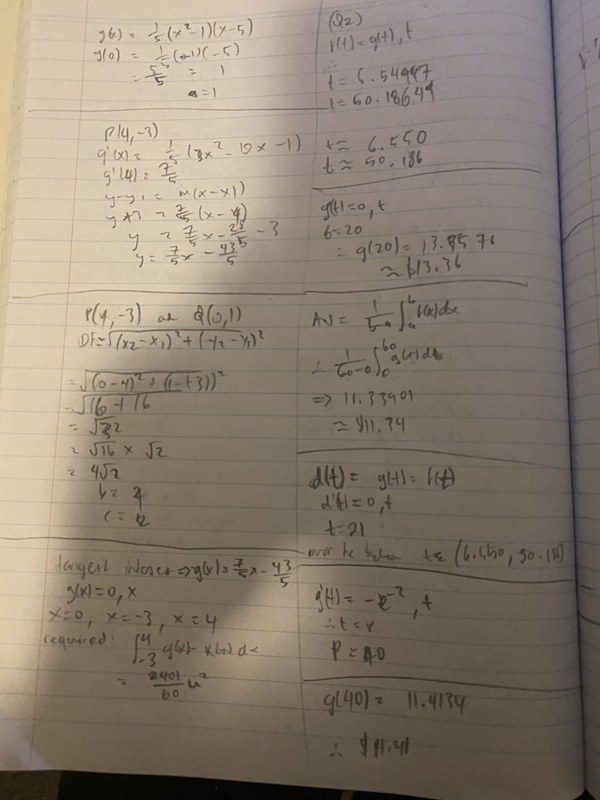 g(x) = 1/5 (x²-1)(x-5)
g(0) = 1/5 (-1)(-5)
= 5/5 = 1
a=1
P(4,-3)
g'(x) = 1/5 (3x² - 10x - 1)
g'(4) = 7/5
y-y₁ = m(x-x₁)
y+3 = 7/5 (x-4)
y = 7/5 x - 28/5 - 3
y = 7/5 x - 43/5
P(4,-3) and Q(0,1)
= √((x₂-x₁)² + (y₂-y₁)²
= √((0-4)² + (1+3))²
= √16 + 16
= √32
= √16 × √2
= 4√2
b = 4
c = 2
tangent ⇒ g(x) = 7/5 x - 43/5
g(x)=0, x
x=0, x=-3, x=4
required: ∫₋₃⁴ g(x) - dx
= 2401/60 u²
(Q2)
= g(t), t
t = 6.54997
t = 50.18649
t ≈ 6.550
t ≈ 50.186
g'(t)=0, t
t=20
∴ g(20) = 13.3576
≈ $13.36
Av = ∫ f(x)dx
∴ 1/(60-0) ∫₀⁶⁰ g(x)dx
⇒ 11.33901
≈ $11.34
d(t) = g(t) -
d'(t) = 0, t
t=21
must be between t∈ (6.550, 50.186)
g'(t) = , t
P = 40
g(40) = 11.4134
∴ $11.41